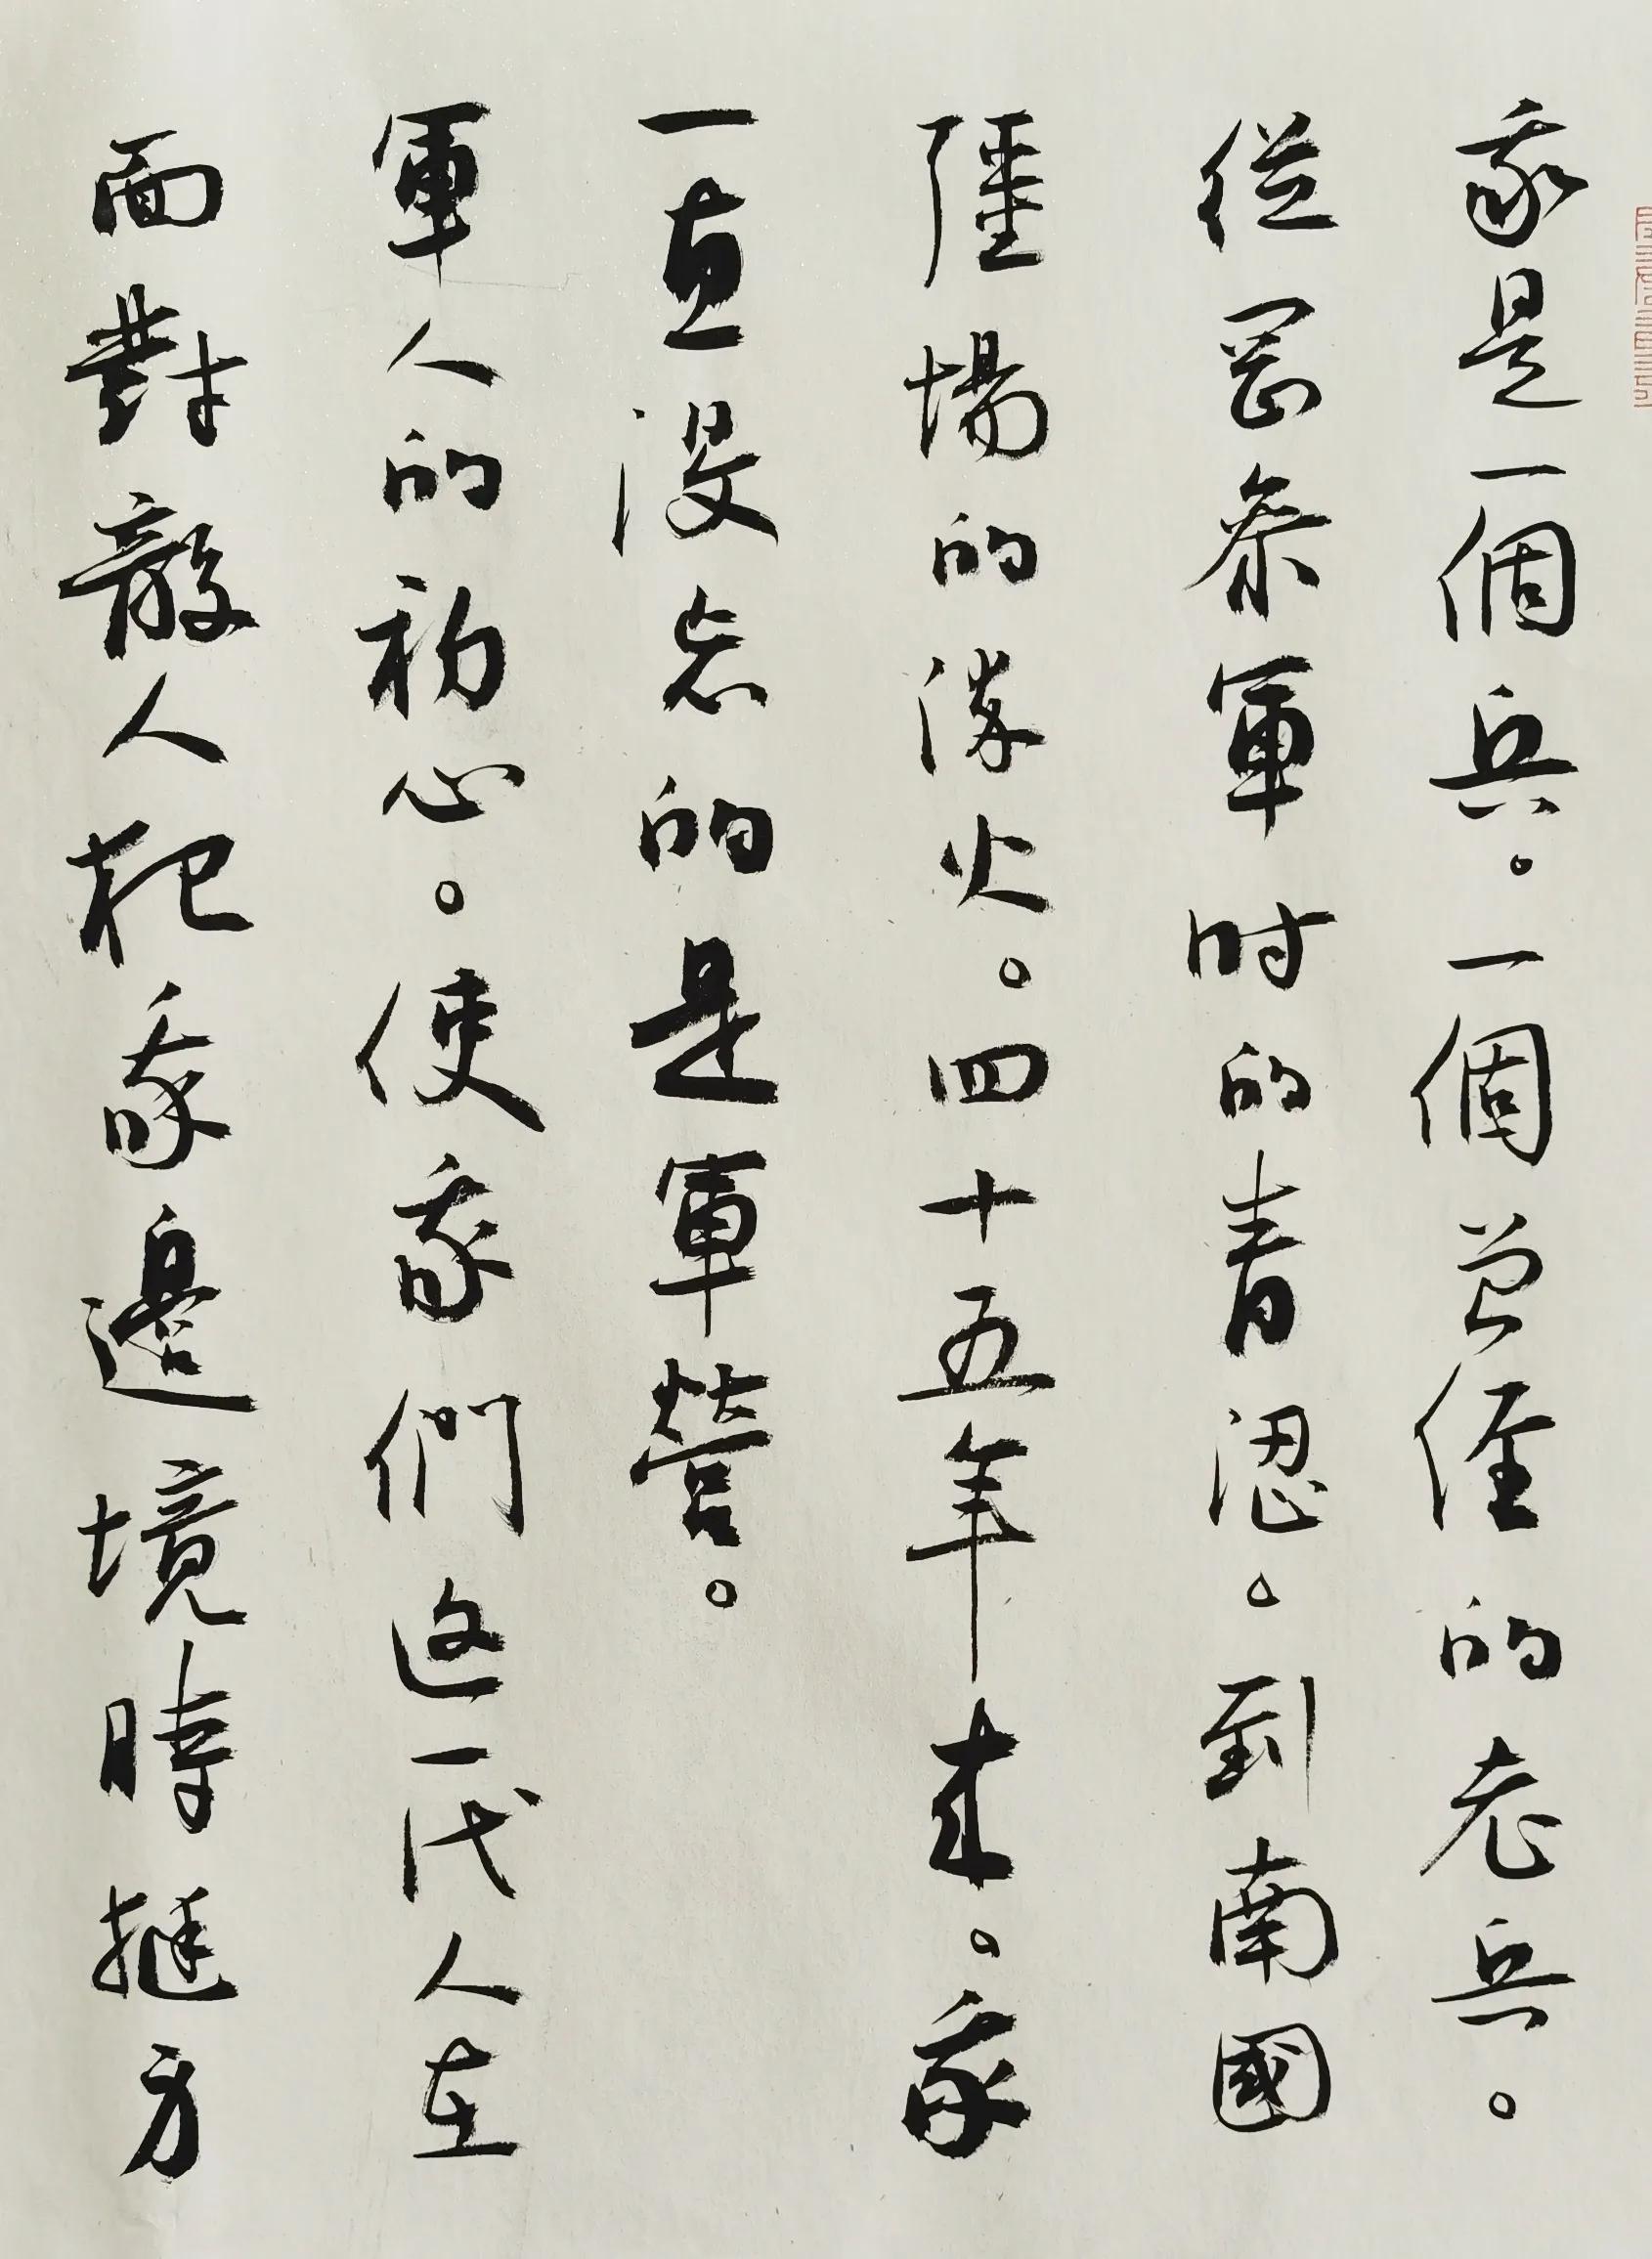 我是一個兵。一個曾经的老兵。
從岡參軍时的青涩。到南國
疆場的烽火。四十五年来。我
一直没忘的是軍營。
軍人的初心。使我們这一代人在
面對敵人犯我邊境時挺身